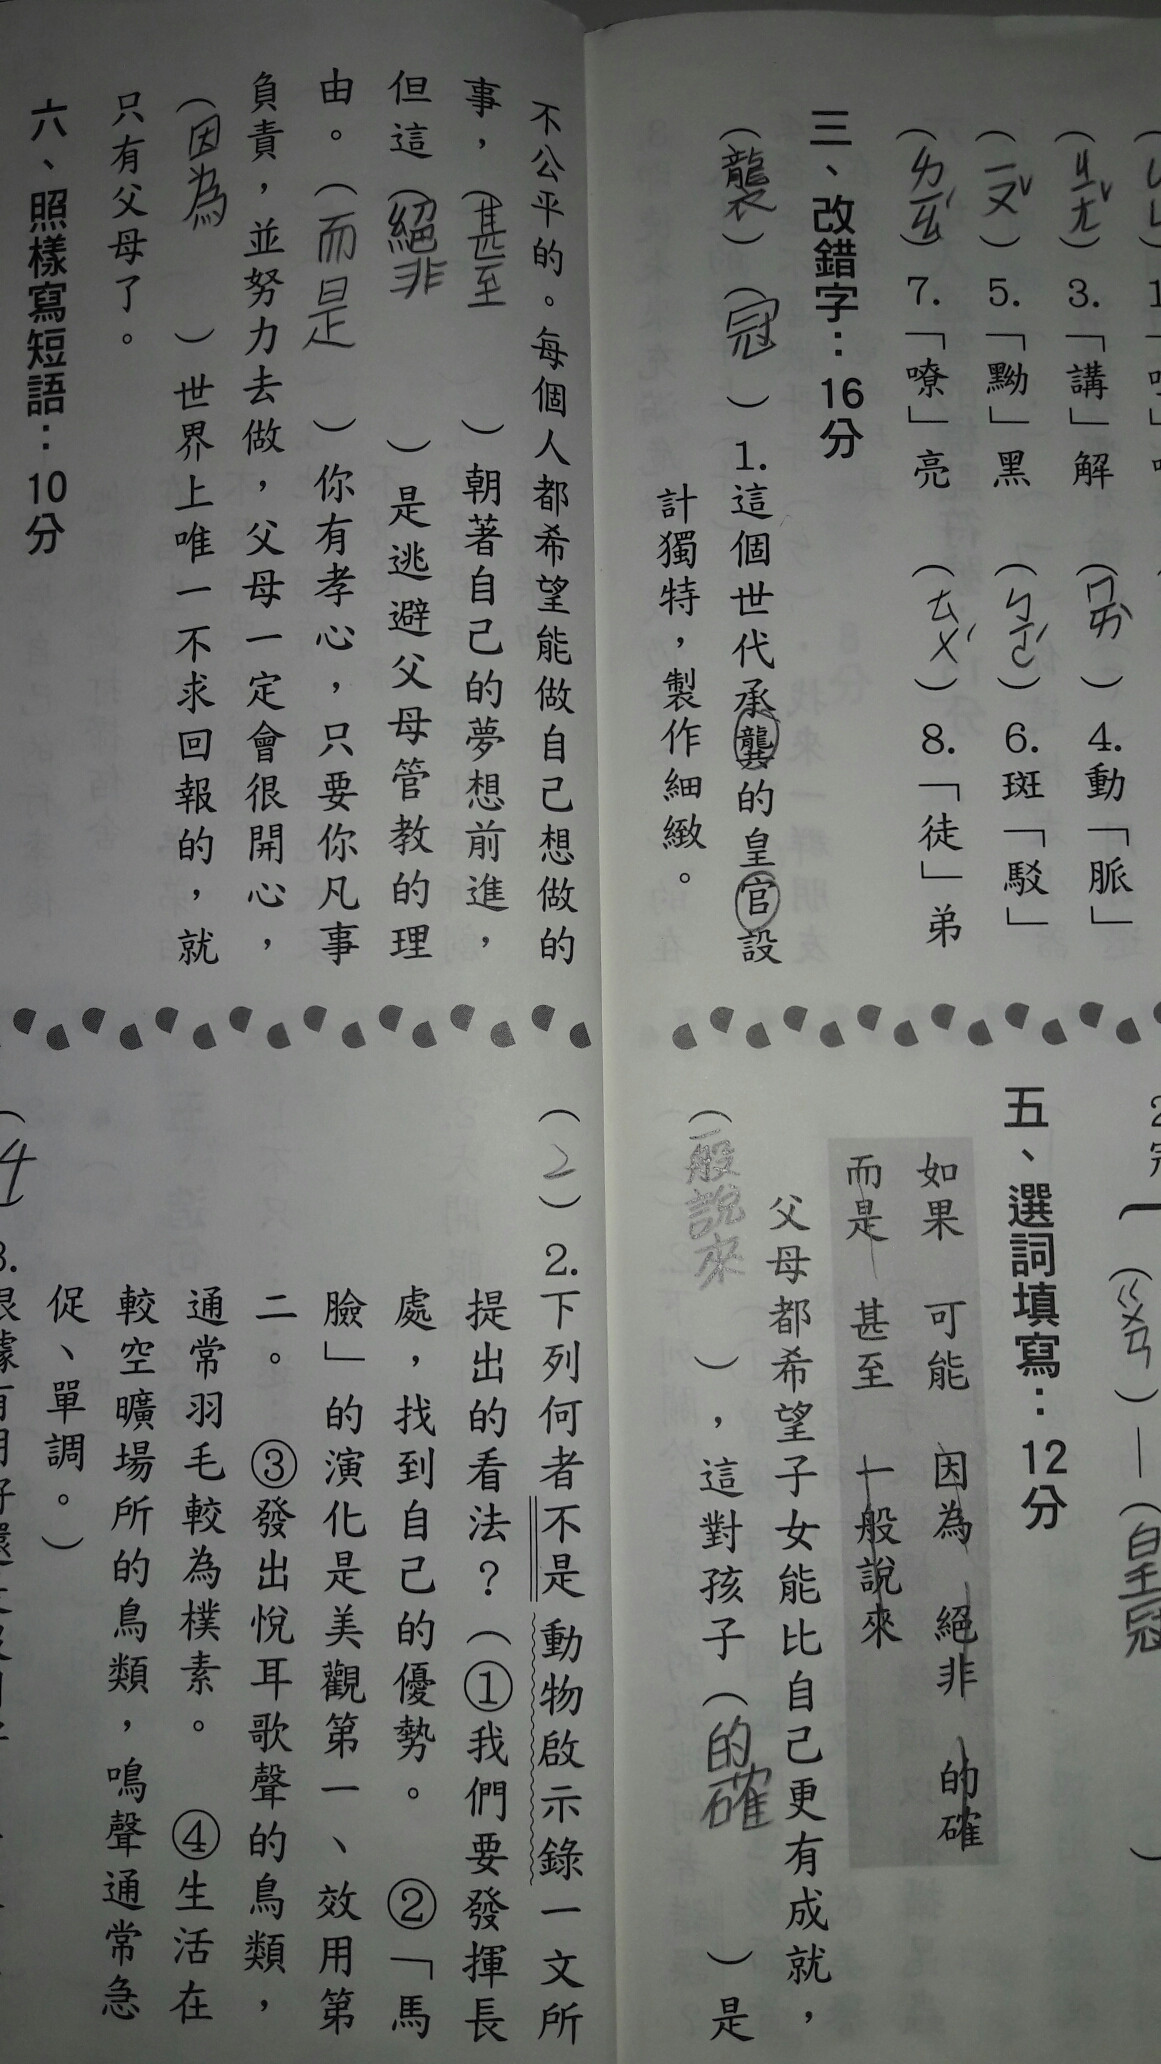 (ㄐㄧㄤˇ) 3.「講」解
(ㄇㄞˋ) 4.動「脈」
(ㄧㄡˇ) 5.「黝」黑
(ㄅㄛˊ) 6.斑「駁」
(ㄌㄧㄠˊ) 7.「嘹」亮
(ㄊㄨˊ) 8.「徒」弟
三、改錯字：16分
(襲)(冠) 1.這個世代承龔的皇官設
計獨特，製作細緻。
(ㄍㄨㄢ)—(皇冠
五、選詞填寫：12分
如果 可能 因為 絕非 的確
而是 甚至 一般說來
父母都希望子女能比自己更有成就，
(一般說來)，這對孩子(的確)是
不公平的。每個人都希望能做自己想做的
事，(甚至)朝著自己的夢想前進，
但這(絕非)是逃避父母管教的理
由。(而是)你有孝心，只要你凡事
負責，並努力去做，父母一定會很開心，
(因為)世界上唯一不求回報的，就
只有父母了。
六、照樣寫短語：10分
(2) 2.下列何者不是動物啟示錄一文所
提出的看法？(①我們要發揮長
處，找到自己的優勢。 ②「馬
臉」的演化是美觀第一、效用第
二。 ③發出悅耳歌聲的鳥類，
通常羽毛較為樸素。 ④生活在
較空曠場所的鳥類，鳴聲通常急
促、單調。)
(4) 3.